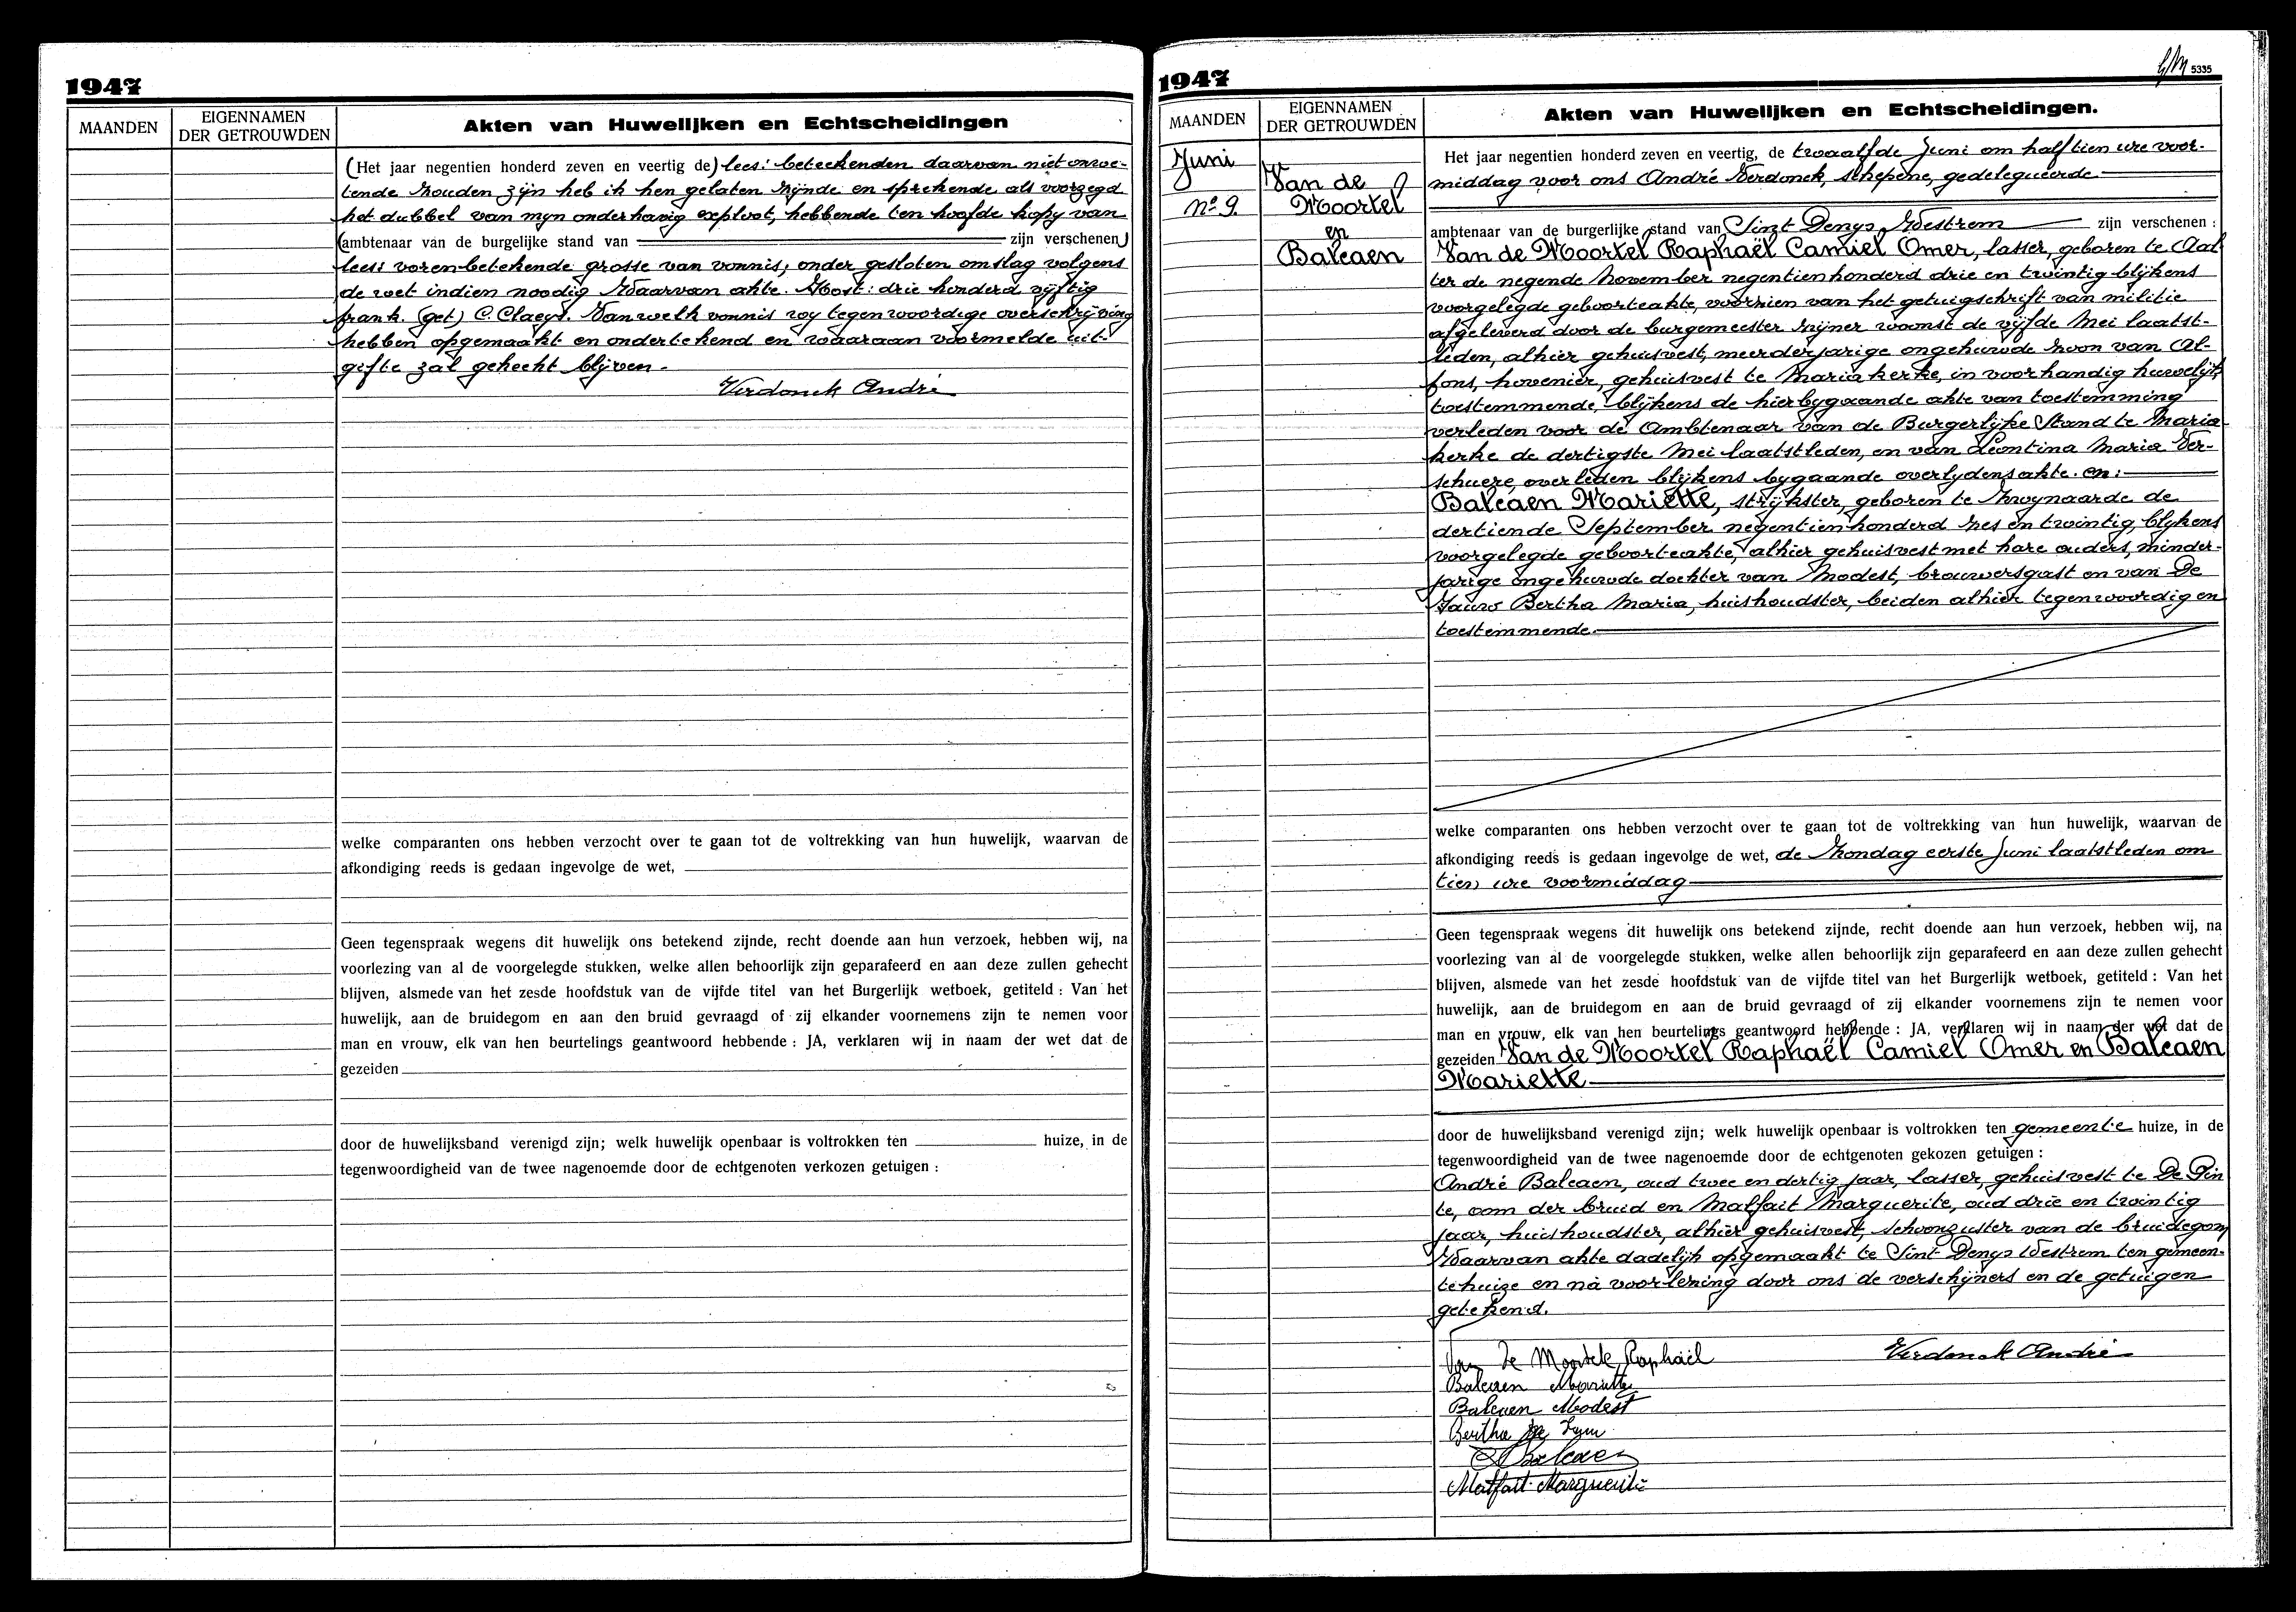 1947
MAANDEN
EIGENNAMEN
DER GETROUWDEN
Akten van Huwelijken en Echtscheidingen
(Het jaar negentien honderd zeven en veertig de) lees: beteekenden daarvan niet onwe-
tende zouden zijn heb ik hen gelaten zijnde en sprekende als voorzegd
het dubbel van mijn onderhavig exploot, hebbende ten hoofde kopy van
(ambtenaar van de burgelijke stand van zijn verschenen)
lees: vorenbetekende grosse van vonnis; onder gesloten omslag volgens
de wet indien noodig Waarvan akte. Kost: drie honderd vijftig
frank. (get) C. Claeys. Van welk vonnis wy tegenwoordige overschrijving
hebben opgemaakt en ondertekend en waaraan voormelde uit-
gifte zal gehecht blijven.
Verdonck André
welke comparanten ons hebben verzocht over te gaan tot de voltrekking van hun huwelijk, waarvan de
afkondiging reeds is gedaan ingevolge de wet,
Geen tegenspraak wegens dit huwelijk ons betekend zijnde, recht doende aan hun verzoek, hebben wij, na
voorlezing van al de voorgelegde stukken, welke allen behoorlijk zijn geparafeerd en aan deze zullen gehecht
blijven, alsmede van het zesde hoofdstuk van de vijfde titel van het Burgerlijk wetboek, getiteld : Van het
huwelijk, aan de bruidegom en aan den bruid gevraagd of zij elkander voornemens zijn te nemen voor
man en vrouw, elk van hen beurtelings geantwoord hebbende : JA, verklaren wij in naam der wet dat de
gezeiden
door de huwelijksband verenigd zijn; welk huwelijk openbaar is voltrokken ten huize, in de
tegenwoordigheid van de twee nagenoemde door de echtgenoten verkozen getuigen :
1947
5335
MAANDEN
EIGENNAMEN
DER GETROUWDEN
Akten van Huwelijken en Echtscheidingen.
Juni
No 9.
Van de
Moortel
en
Balcaen
Het jaar negentien honderd zeven en veertig, de twaalfde Juni om half tien ure voor-
middag voor ons André Verdonck, schepene, gedelegueerde
ambtenaar van de burgerlijke stand van Sint Denys Westrem zijn verschenen :
Van de Moortel Raphaël Camiel Omer, lasser, geboren te Aal
ter de negende November negentienhonderd drie en twintig blijkens
voorgelegde geboorteakte, voorzien van het getuigschrift van militie
afgeleverd door de burgemeester zijner woonst de vijfde Mei laatst-
leden, alhier gehuisvest, meerderjarige ongehuwde zoon van Al-
fons, hovenier, gehuisvest te Mariakerke, in voorhandig huwelijk
toestemmende, blijkens de hierbygaande akte van toestemming
verleden voor de Ambtenaar van de Burgerlijke Stand te Maria-
kerke de dertigste Mei laatstleden, en van Leontina Maria Ver-
schuere, overleden blijkens bygaande overlydensakte. en:
Balcaen Mariette, strijkster, geboren te Zwynaarde de
dertiende September negentienhonderd zes en twintig, blykens
voorgelegde geboorteakte, alhier gehuisvest met hare ouders, minder-
jarige ongehuwde dochter van Modest, brouwersgast en van De
Jauw Bertha Maria, huishoudster, beiden alhier tegenwoordig en
toestemmende.
welke comparanten ons hebben verzocht over te gaan tot de voltrekking van hun huwelijk, waarvan de
afkondiging reeds is gedaan ingevolge de wet, de Zondag eerste Juni laatstleden om
tien ure voormiddag
Geen tegenspraak wegens dit huwelijk ons betekend zijnde, recht doende aan hun verzoek, hebben wij, na
voorlezing van al de voorgelegde stukken, welke allen behoorlijk zijn geparafeerd en aan deze zullen gehecht
blijven, alsmede van het zesde hoofdstuk van de vijfde titel van het Burgerlijk wetboek, getiteld : Van het
huwelijk, aan de bruidegom en aan de bruid gevraagd of zij elkander voornemens zijn te nemen voor
man en vrouw, elk van hen beurtelings geantwoord hebbende : JA, verklaren wij in naam der wet dat de
gezeiden Van de Moortel Raphaël Camiel Omer en Balcaen
Mariette
door de huwelijksband verenigd zijn; welk huwelijk openbaar is voltrokken ten gemeente huize, in de
tegenwoordigheid van de twee nagenoemde door de echtgenoten gekozen getuigen :
André Balcaen, oud twee en dertig jaar, lasser, gehuisvest te De Pin
te, oom der bruid en Malfait Marguerite, oud drie en twintig
jaar, huishoudster, alhier gehuisvest, schoonzuster van de bruidegom
Waarvan akte dadelijk opgemaakt te Sint Denys Westrem ten gemeen-
tehuize en na voorlezing door ons de verschijners en de getuigen
getekend.
Van De Moortele Raphaël
Verdonck André
Balcaen Mariette
Balcaen Modest
Bertha De
Balcaen
Malfait Marguerite